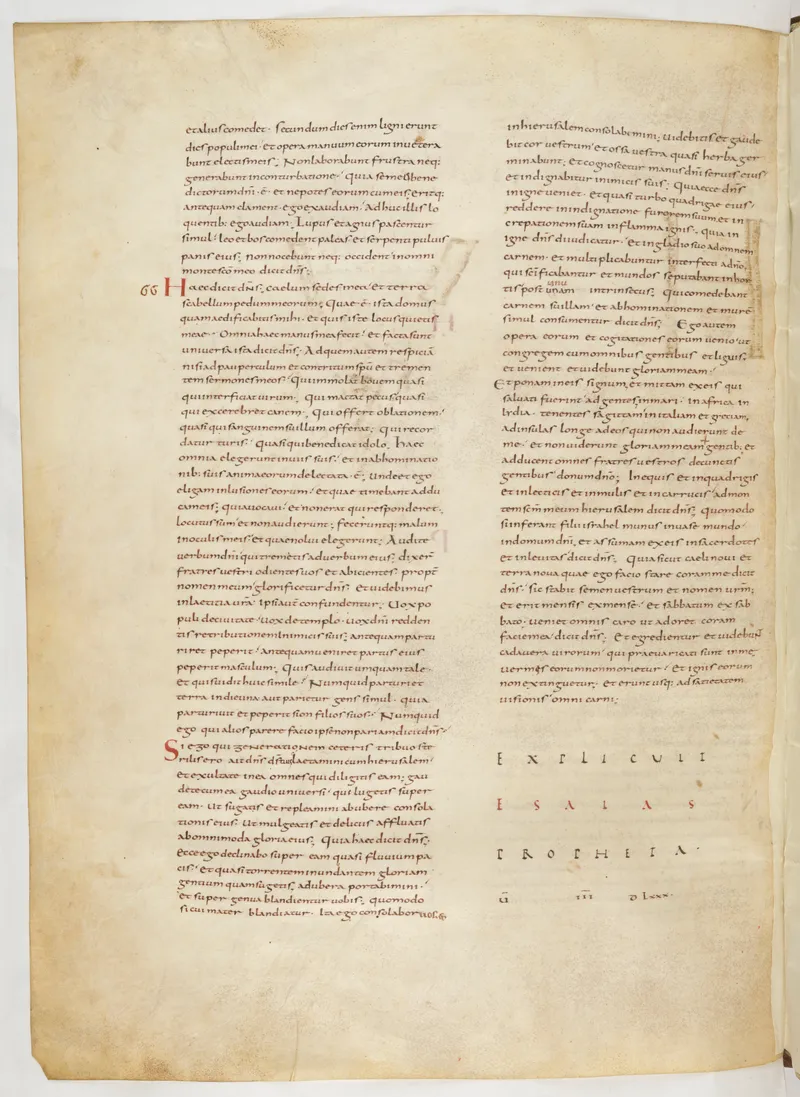 et alius comedet. secundum dies enim ligni erunt
dies populi mei. et opera manuum eorum inuetera
bunt electis meis; Non laborabunt frustra neq:
generabunt in conturbatione. quia semen bene
dictorum dn̄i .ē. et nepotes eorum cum eis; eritq:
antequam clament. ego exaudiam. Adhuc illis lo
quentib: ego audiam; Lupus et agnus pascentur
simul. leo et bos comedent paleas et serpenti puluis
panis eius; non nocebunt neq: occident in omni
monte sc̄o meo dicit dn̄s;
66 Haec dicit dn̄s; caelum sedes mea. et terra
scabellum pedum meorum; Quae .ē. ista domus
quam aedificabitis mihi. et quis iste locus quietis
meae. Omnia haec manus mea fecit. et facta sunt
uniuersa ista dicit dn̄s; Ad quem autem respiciā
nisi ad pauperculum et contritum sp̄u et tremen
tem sermones meos. Qui immolat bouem quasi
qui interficiat uirum; Qui mactat pecus quasi
qui excerebret canem; Qui offert oblationem.
quasi qui sanguinem suillum offerat; Qui recor
datur turis. quasi qui benedicat idolo; haec
omnia elegerunt in uiis suis. et in abhominatio
nib: suis anima eorum delectata .ē; Unde et ego
eligam inlusiones eorum. et quae timebant addu
cam eis; quia uocaui. et non erat qui responderet.
locutus sum et non audierunt; feceruntq: malum
in oculis meis et quae nolui elegerunt; Audite
uerbum dn̄i qui tremetis ad uerbum eius; dixer̄
fratres uestri odientes uos et abicientes. propt̄
nomen meum glorificetur dn̄s. et uidebimus
in laeticia ur̄a. ipsi aut̄ confundentur; Uox po
puli de ciuitate. uox de templo. uox dn̄i redden
tis retributionem inimicis suis; antequam partu
riret peperit. Antequam ueniret partus eius
peperit masculum; Quis audiuit umquam tale.
et quis uidit huic simile. Numquid parturiet
terra in die una. aut parietur gens simul. quia
parturiuit et peperit sion filios suos. Numquid
ego qui alios parere facio ipse non pariam dicit dn̄s.
Si ego qui generationem ceteris tribuo ste
rilis ero ait dn̄s d̄s tuus laetamini cum hierusalem.
et exultate in ea omnes qui diligitis eam; gau
dete cum ea gaudio uniuersi. qui lugetis super
eam. ut sugatis et repleamini ab ubere consola
tionis eius; ut mulgeatis et deliciis affluatis
ab omnimoda gloria eius; Quia haec dicit dn̄s;
ecce ego declinabo super eam quasi fluuium pa
cis. et quasi torrentem inundantem gloriam
gentium quam sugetis; ad ubera portabimini.
et super genua blandientur uobis; quomodo
si cui mater blandiatur. Ita ego consolabor uos. &
in hierusalem consolabemini; uidebitis et gaude
bit cor uestrum. et ossa uestra quasi herba ger
minabunt; et cognoscetur manus dn̄i seruis eius
et indignabitur inimicis suis; Quia ecce dn̄s
in igne ueniet. et quasi turbo quadrigae eius.
reddere in indignatione furorem suum. et in
crepationem suam in flamma ignis. quia in
igne dn̄s diiudicatur. et in gladio suo ad omnem
carnem. et multiplicabuntur interfecti a dn̄o;
qui sc̄ificabantur et mundos se putabant in hor
tis post unam intrinsecus; Qui comedebant
carnem suillam. et abhominationem et murē
simul consumentur dicit dn̄s; Ego autem
opera eorum et cogitationes eorum uenio. ut
congregem cum omnibus gentibus et liguis;
et uenient et uidebunt gloriam meam.
Et ponam in eis signum. et mittam ex eis qui
saluati fuerint. ad gentes in mari. in africa in
lydia. tenentes sagittam in italiam et greciam.
ad insulas longe ad eos qui non audierunt de
me. et non uiderunt gloriam meam gentib: et
adducent omnes fratres uestros de cunctis
gentibus donum dn̄o; In equis et in quadrigis
et in lecticis et in mulis et in carrucis. ad mon
tem sc̄m meum hierusalem dicit dn̄s; quomodo
si inferant filii israhel munus in uase mundo.
in domum dn̄i. et assumam ex eis in sacerdotes
et in leuitas dicit dn̄s; Quia sicut caeli noui et
terra noua quae ego facio stare coram me dicit
dn̄s. sic stabit semen uestrum et nomen ur̄m;
et erit mensis ex mense. et sabbatum ex sab
bato. ueniet omnis caro ut adoret coram
facie mea. dicit dn̄s; Et egredientur et uidebun̄
cadauera uirorum. qui praeuaricati sunt in me.
uermis eorum non morietur. et ignis eorum
non extinguetur. et erunt usq: ad satietatem
uisionis omni carni;
EXPLICUIT
ESAIAS
PROPHETA.
ū iii dlxxx.